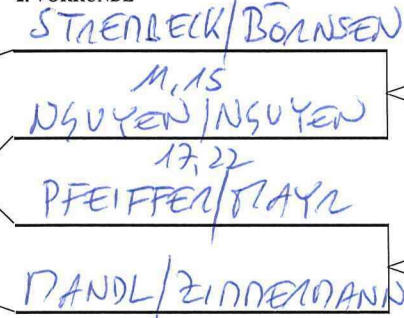 2. VORRUNDE
STRENBECK/BÖRNSEN
11,15
NGUYEN/NGUYEN
17,22
PFEIFFER/MAYR
MANDL/ZIMMERMANN